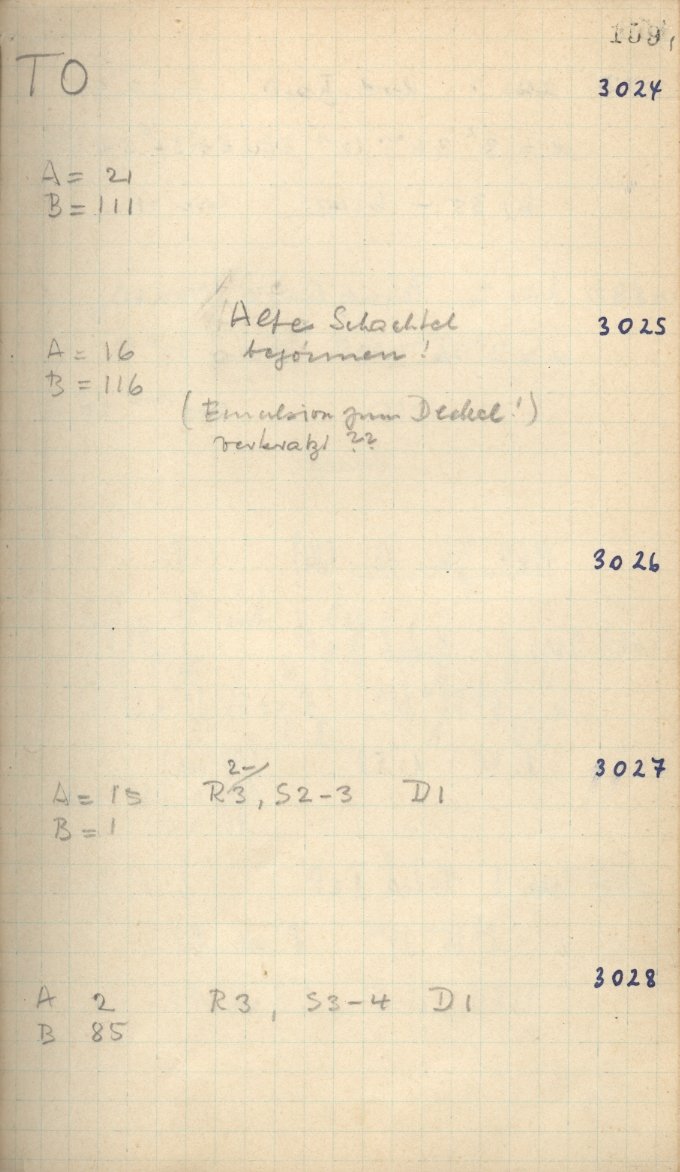 159,
TO
3024
A = 21
B = 111
Alte Schachtel
3025
A = 16
B = 116
(Emulsion zum Deckel!)
verkratzt ??
3026
2-
A = 15 R3, S2-3 D1
3027
B = 1
3028
A 2 R3, S3-4 D1
B 85